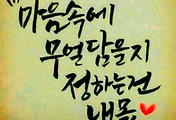 "마음속에
무얼 담을지
정하는건
내몫